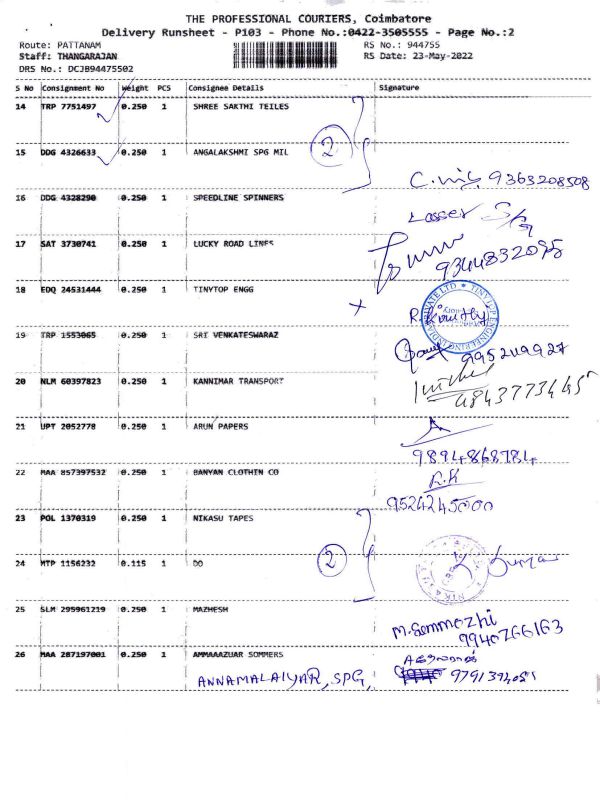 THE PROFESSIONAL COURIERS, Coimbatore
Delivery Runsheet - P103 - Phone No.:0422-3505555 - Page No.:2
Route: PATTANAM RS No.: 944755
Staff: THANGARAJAN RS Date: 23-May-2022
DRS No.: DCJB94475502
S No Consignment No Weight PCS Consignee Details Signature
14 TRP 7751497 0.250 1 SHREE SAKTHI TEILES
2
15 DDG 4326633 0.250 1 ANGALAKSHMI SPG MIL
9363208508
16 DDG 4328290 0.250 1 SPEEDLINE SPINNERS
17 SAT 3730741 0.250 1 LUCKY ROAD LINES
9344832095
18 EDQ 24531444 0.250 1 TINYTOP ENGG
19 TRP 1553065 0.250 1 SRI VENKATESWARAZ
995209927
20 NLM 60397823 0.250 1 KANNIMAR TRANSPORT
21 UPT 2052778 0.250 1 ARUN PAPERS
9894868784
22 MAA 857397532 0.250 1 BANYAN CLOTHIN CO
R.K
9524245000
23 POL 1370319 0.250 1 NIKASU TAPES
24 MTP 1156232 0.115 1 DO
2 Kumar
25 SLM 295961219 0.250 1 MAZHESH
M.Gemmozhi
9940766163
26 MAA 287197001 0.250 1 AMMAAZUAR SOMMERS
ANNAMALAIYAR, SPG,